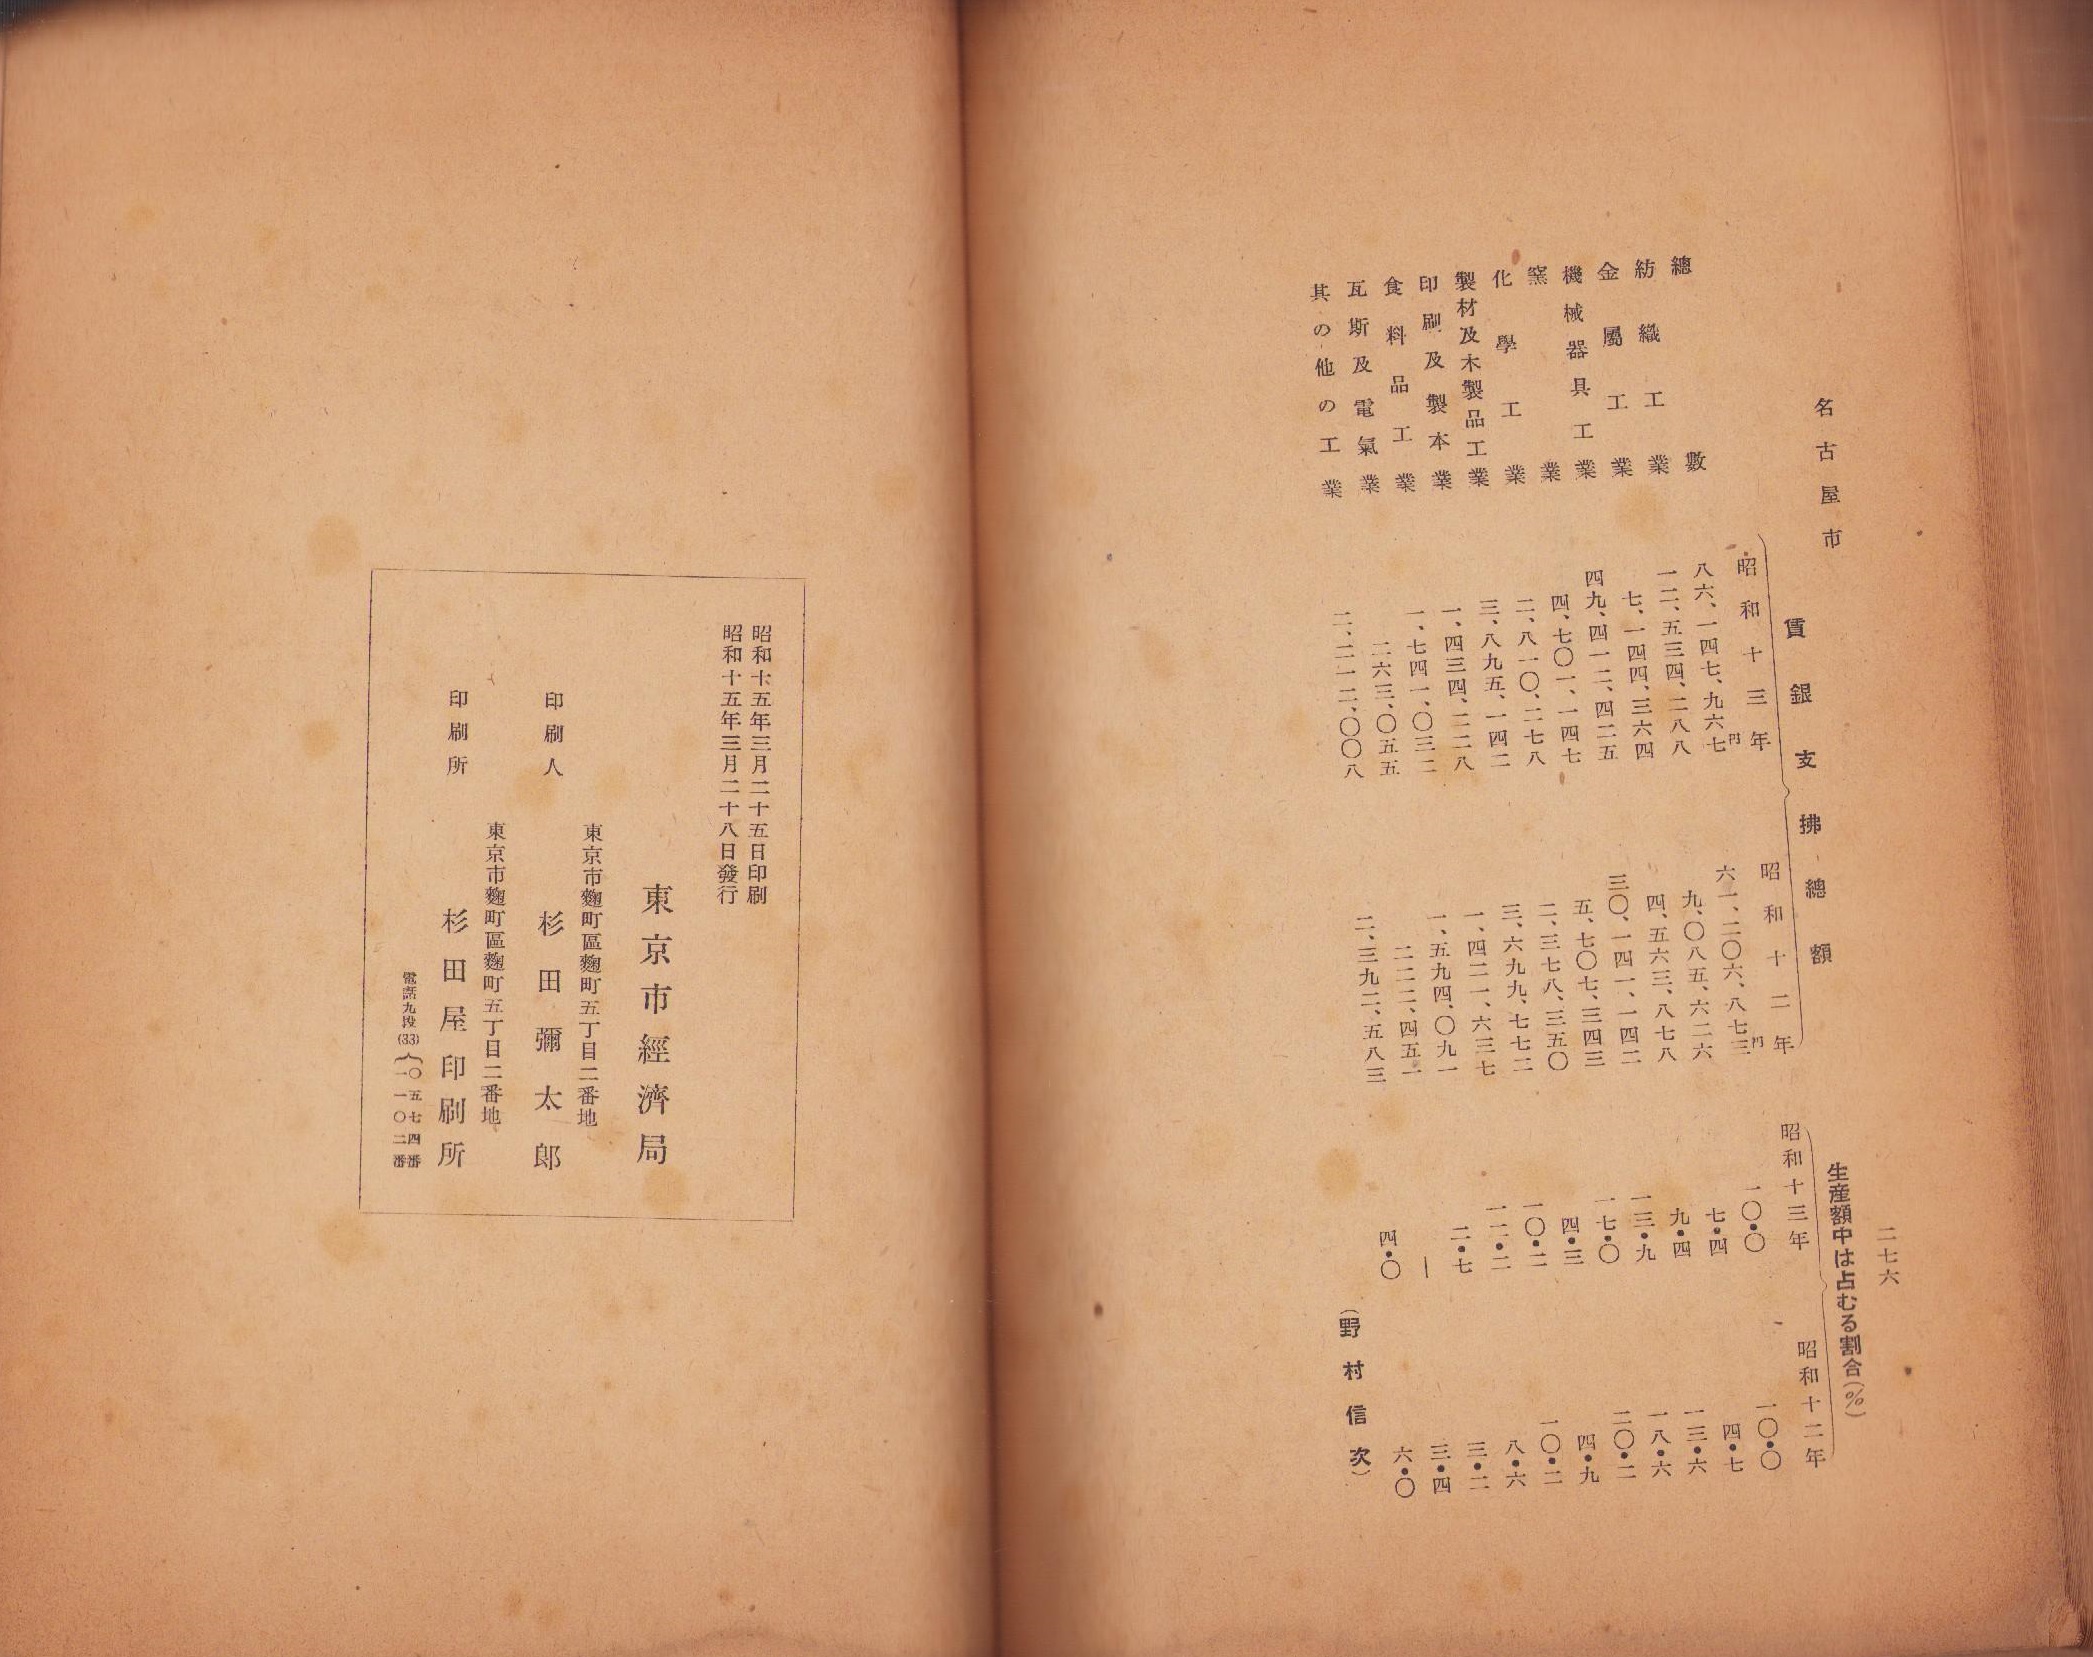 二七六
名古屋市
賃銀支拂總額 生産額中は占むる割合(%)
昭和十三年 昭和十二年 昭和十三年 昭和十二年
總數 八六、一四七、九六七円 六一、二〇六、八七三円 一〇・〇 一〇・〇
紡織工業 一二、五三四、二八八 九、〇八五、六二六 七・四 四・七
金屬工業 七、一四四、三六四 四、五六三、八七八 九・四 一三・六
機械器具工業 四九、四一二、四二五 三〇、一四一、一四二 一三・九 一八・六
窯業 四、七〇一、一四七 五、七〇七、三四三 一七・〇 二〇・二
化學工業 二、八一〇、二七八 二、三七八、三五〇 四・三 四・九
製材及木製品工業 三、八九五、一四二 三、六九九、七七二 一〇・二 一〇・二
印刷及製本業 一、四三四、二二八 一、四二一、六三七 一二・二 八・六
食料品工業 一、七四一、〇三二 一、五九四、〇九一 二・七 三・二
瓦斯及電氣業 二六三、〇五五 二二二、四五一 — 三・四
其の他の工業 二、二一二、〇〇八 二、三九二、五八三 四・〇 六・〇
(野村信次)
昭和十五年三月二十五日印刷
昭和十五年三月二十八日發行
東京市經濟局
東京市麴町區麴町五丁目二番地
印刷人 杉田彌太郎
東京市麴町區麴町五丁目二番地
印刷所 杉田屋印刷所
電話九段(33){〇五七四番
一一〇二番